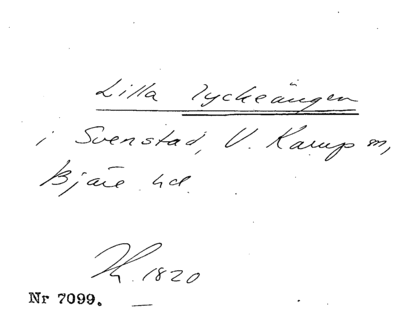 Lilla Tyckeängen
i Svenstad, V. Karup sn,
Bjäre hd.
Kh. 1820
Nr 7099.